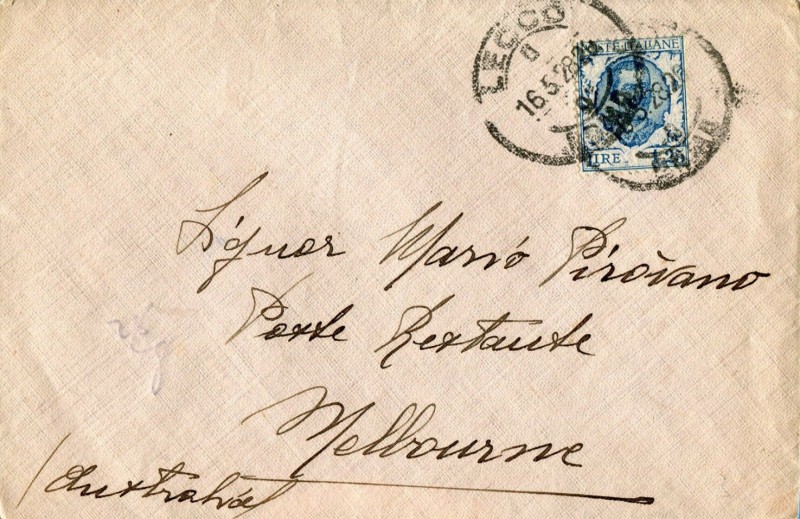 LECCO
16.5.28
POSTE ITALIANE
LIRE 1,25
Signor Mario Pirovano
Poste Restante
Melbourne
(Australia)